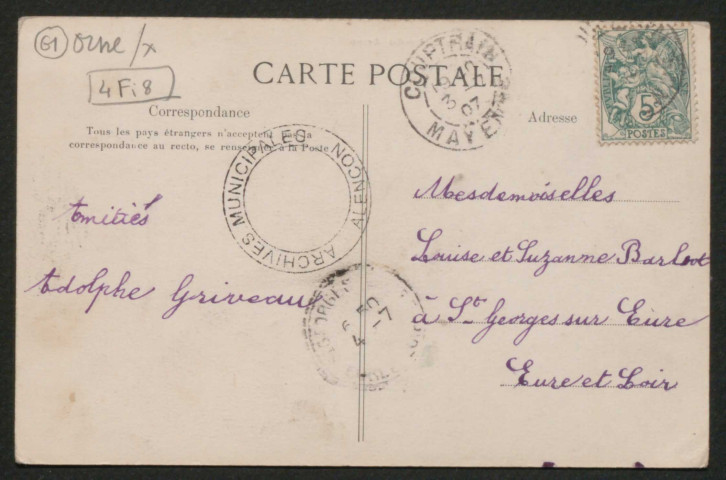 61 Orne/x
4Fi8
CARTE POSTALE
Correspondance
Tous les pays étrangers n'acceptent la
correspondance au recto, se renseigner à la Poste
Adresse
COUPTRAIN
07
MAYENNE
5
POSTES
ARCHIVES MUNICIPALES
ALENÇON
Amitiés
Adolphe Griveau
Mesdemoiselles
Louise et Suzanne
à St Georges sur Eure
Eure et Loir